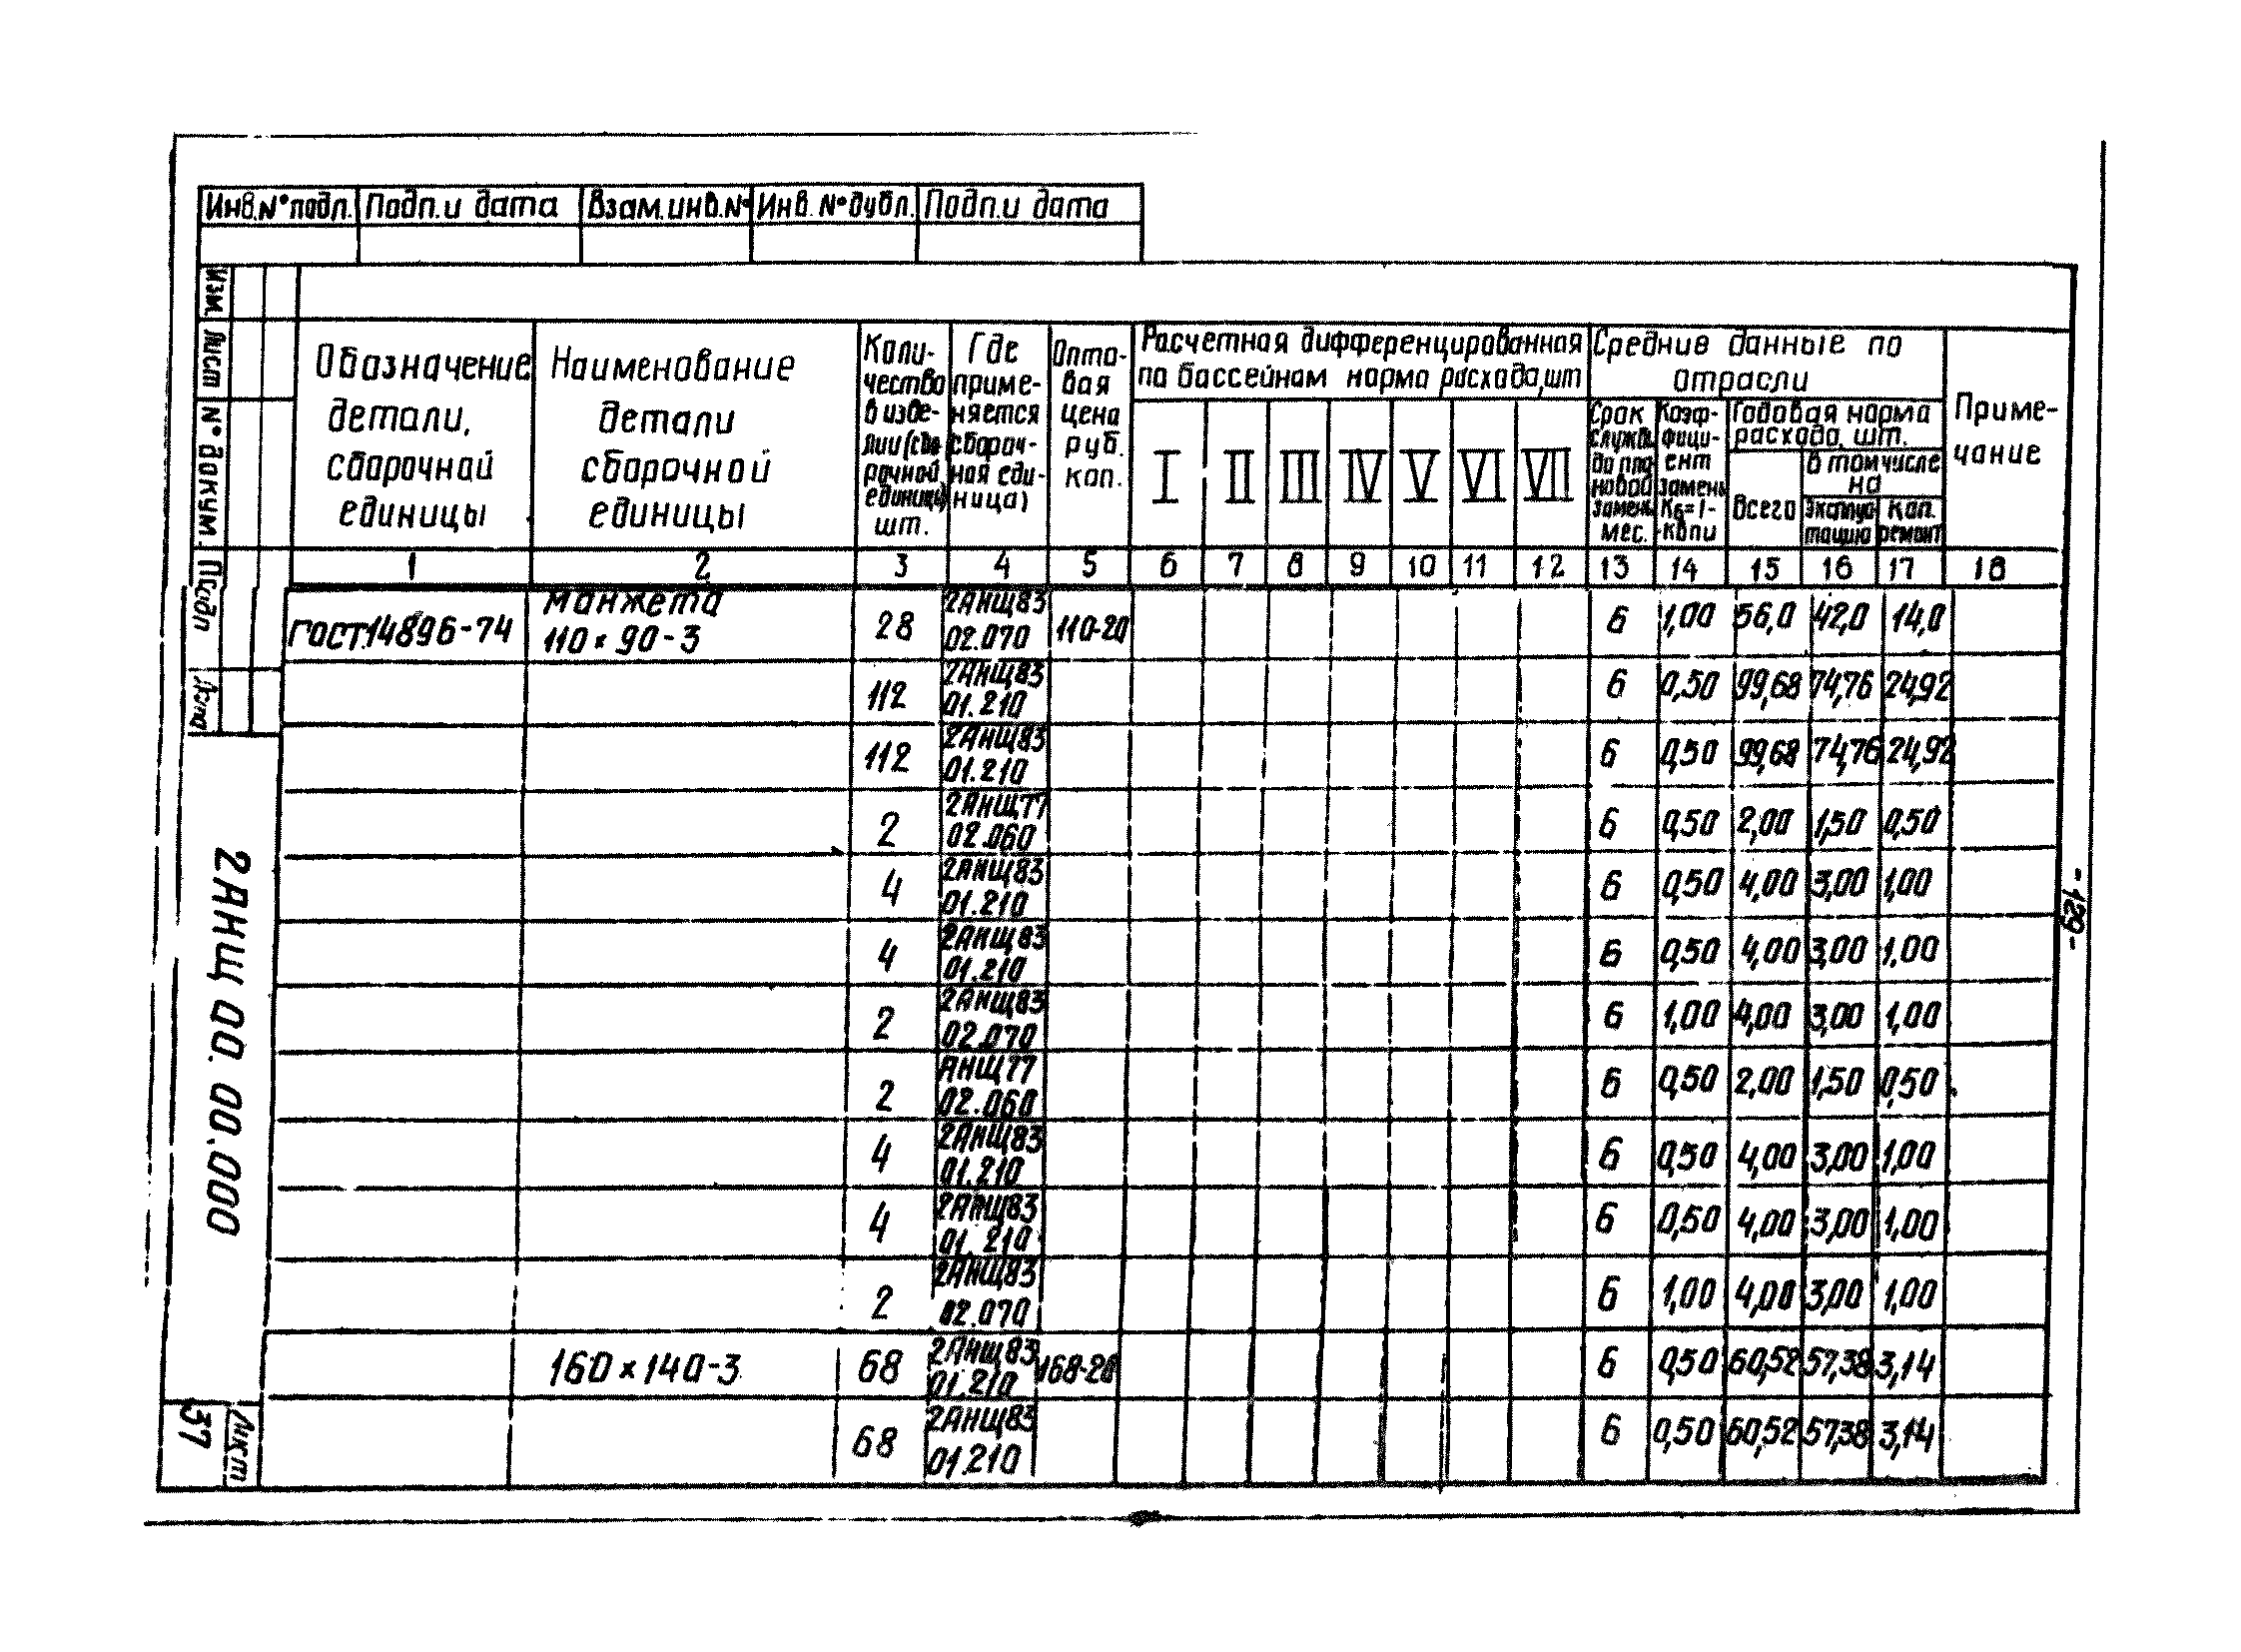 Инв.№ подл. Подп.и дата Взам.инв.№ Инв.№ дубл. Подп.и дата
Изм. Лист № докум. Подп Дата
2АНЩ 00.00.000
Лист
37
Обозначение детали, сборочной единицы
Наименование детали сборочной единицы
Количество в изделии (сборочной единицы) шт.
Где применяется (сборочная единица)
Оптовая цена руб. коп.
Расчетная дифференцированная по бассейнам норма расхода, шт
I II III IV V VI VII
Средние данные по отрасли
Срок службы до плановой замены мес.
Коэффициент замены
Годовая норма расхода, шт.
Всего
в том числе на
Эксплуатацию
кап. ремонт
Примечание
1 2 3 4 5 6 7 8 9 10 11 12 13 14 15 16 17 18
ГОСТ14896-74 манжета 110×90-3 28 2АНЩ83 02.070 110-20 6 1,00 56,0 42,0 14,0
112 2АНЩ83 01.210 6 0,50 99,68 74,76 24,92
112 2АНЩ83 01.210 6 0,50 99,68 74,76 24,92
2 2АНЩ77 02.060 6 0,50 2,00 1,50 0,50
4 2АНЩ83 01.210 6 0,50 4,00 3,00 1,00
4 2АНЩ83 01.210 6 0,50 4,00 3,00 1,00
2 2АНЩ83 02.070 6 1,00 4,00 3,00 1,00
2 АНЩ77 02.060 6 0,50 2,00 1,50 0,50
4 2АНЩ83 01.210 6 0,50 4,00 3,00 1,00
4 2АНЩ83 01.210 6 0,50 4,00 3,00 1,00
2 2АНЩ83 02.070 6 1,00 4,00 3,00 1,00
160×140-3 68 2АНЩ83 01.210 168-20 6 0,50 60,52 57,38 3,14
68 2АНЩ83 01.210 6 0,50 60,52 57,38 3,14
-129-